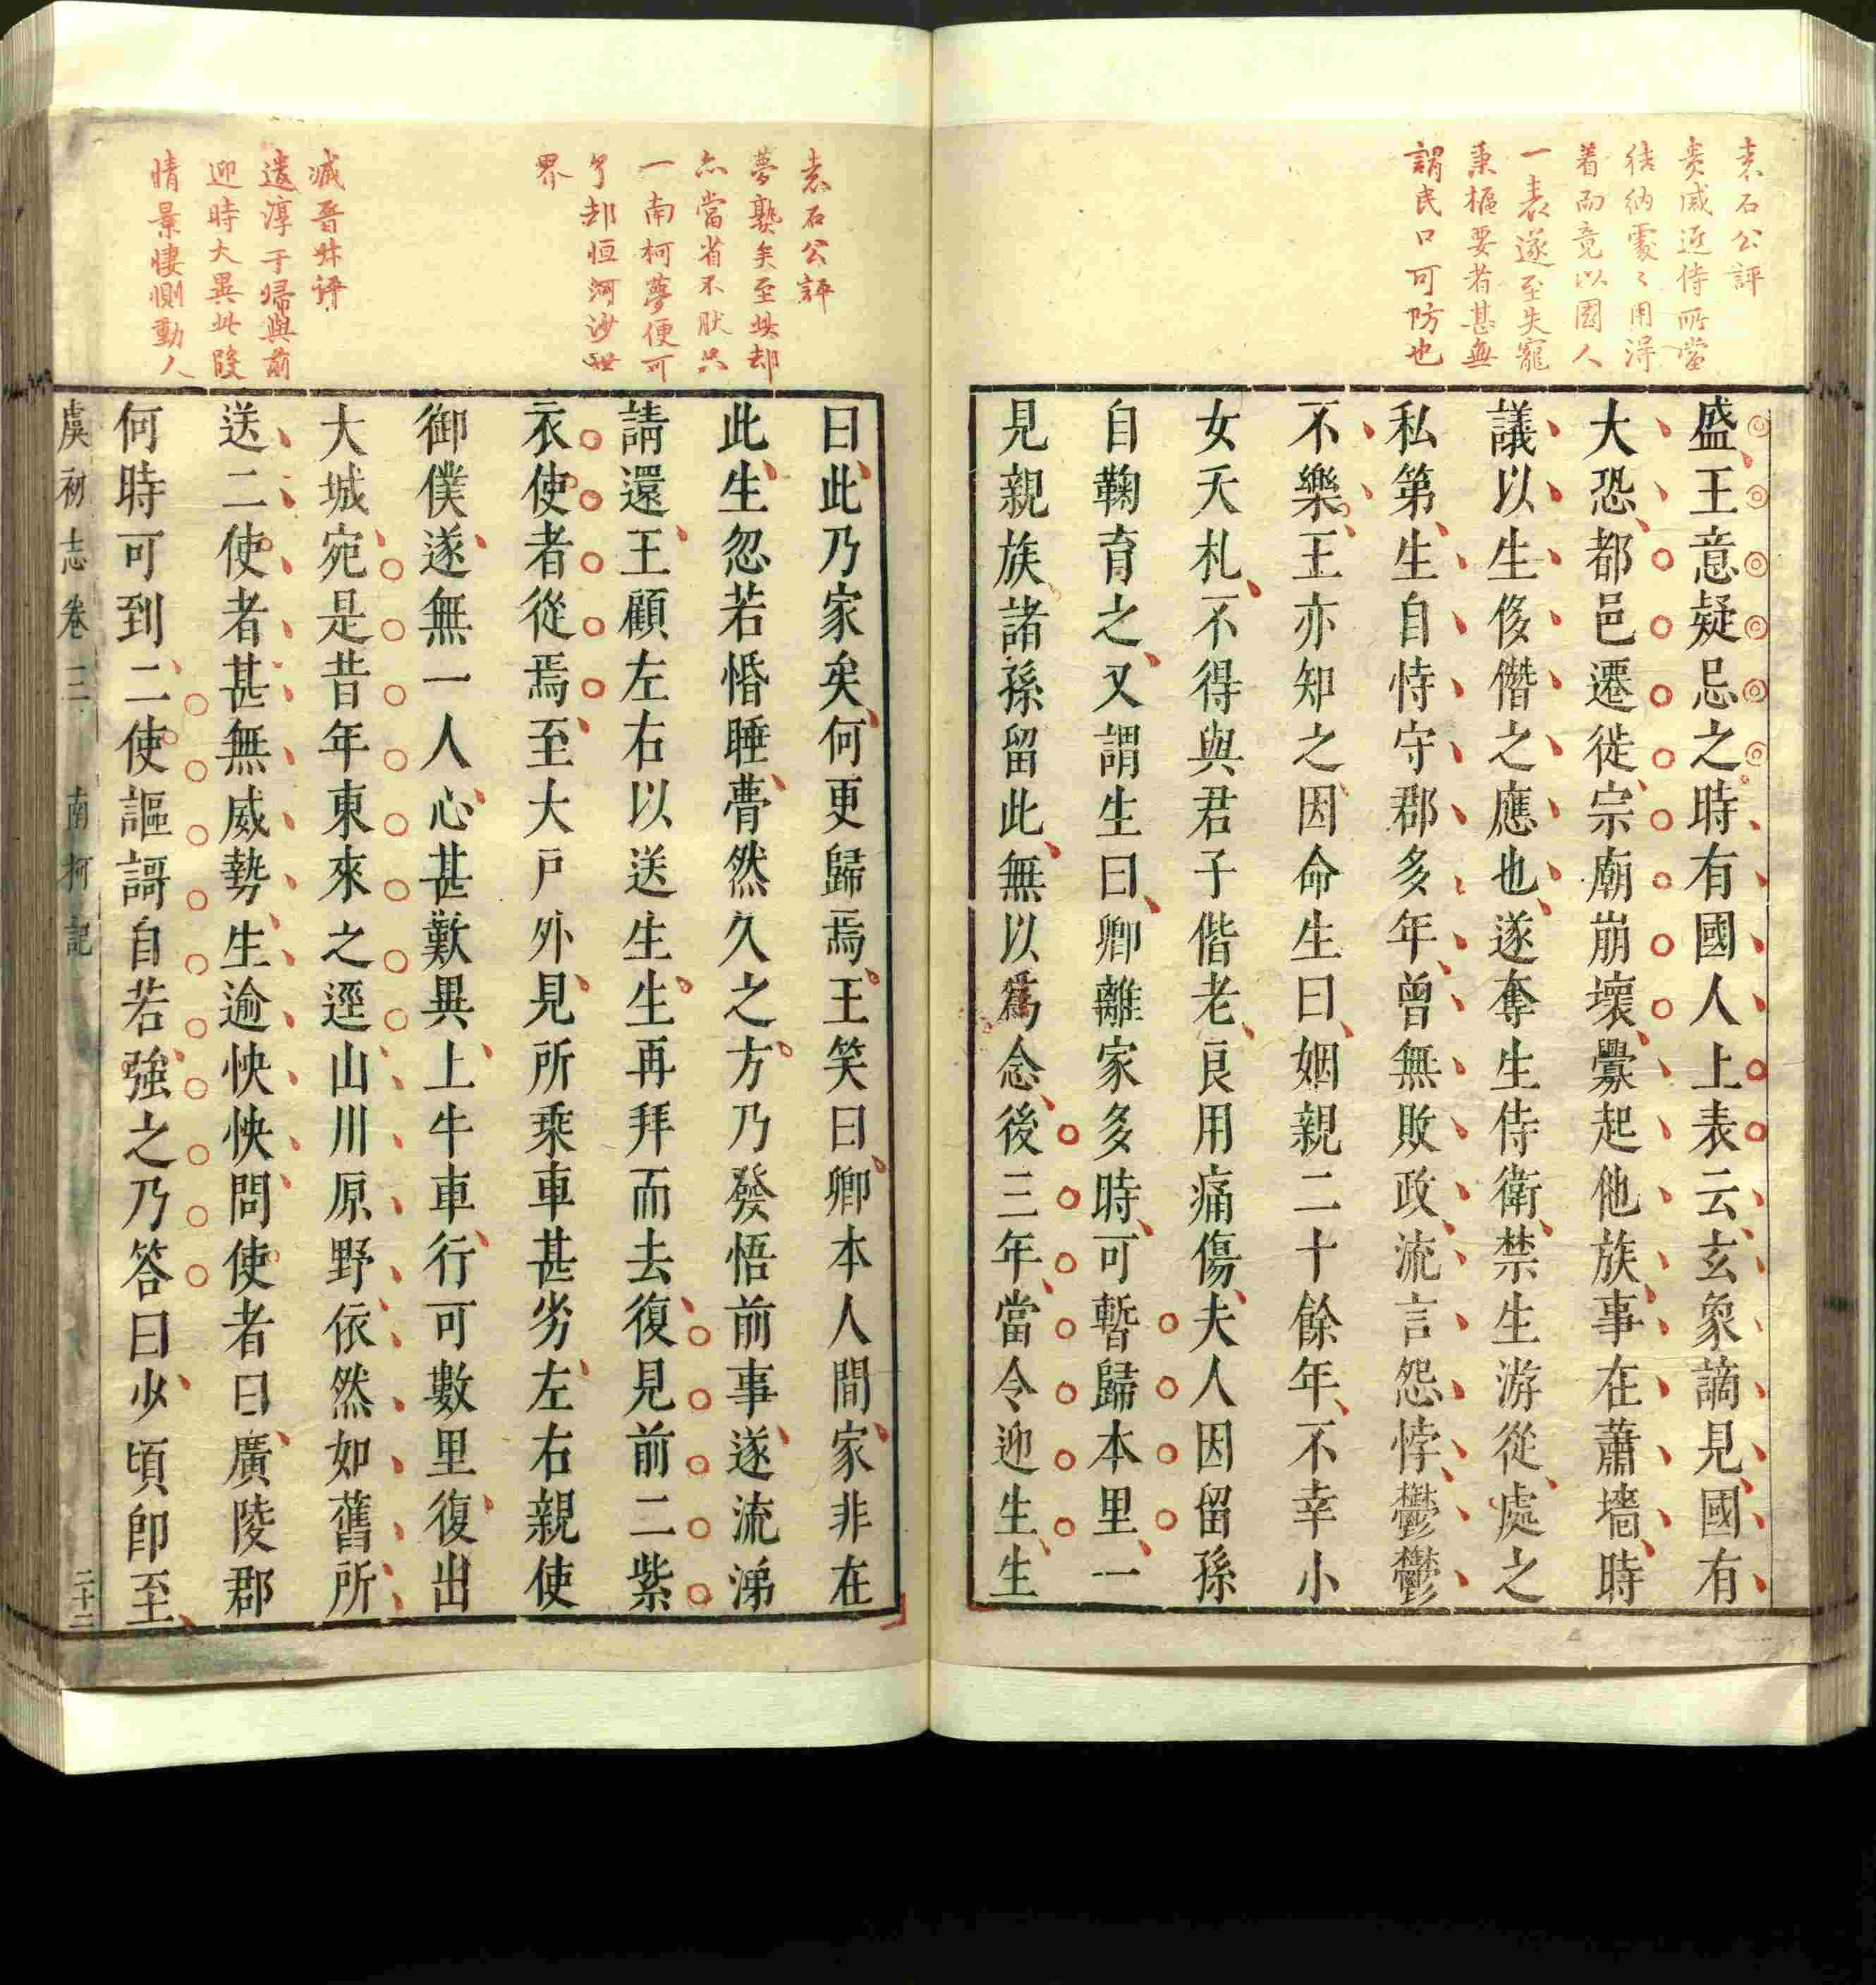 袁石公評
貴戚近侍所當
結納處〻用淂
着而竟以國人
一表遂至失寵
秉樞要者甚無
謂民口可防也
盛王意疑忌之時有國人上表云玄象謫見國有
大恐都邑遷徙宗廟崩壞釁起他族事在蕭墻時
議以生侈僭之應也遂奪生侍衛禁生游從處之
私第生自恃守郡多年曾無敗政流言怨悖鬱鬱
不樂王亦知之因命生曰姻親二十餘年不幸小
女夭札不得與君子偕老良用痛傷夫人因留孫
自鞠育之又謂生曰卿離家多時可暫歸本里一
見親族諸孫留此無以爲念後三年當令迎生生
袁石公評
夢熟矣至此却
亦當省不肰只
一南柯夢便可
了却恒河沙世
界
曰此乃家矣何更歸焉王笑曰卿本人間家非在
此生忽若惛睡瞢然久之方乃發悟前事遂流涕
請還王顧左右以送生生再拜而去復見前二紫
衣使者從焉至大戶外見所乘車甚劣左右親使
御僕遂無一人心甚歎異上牛車行可數里復出
大城宛是昔年東來之逕山川原野依然如舊所
送二使者甚無威勢生逾怏怏問使者曰廣陵郡
何時可到二使謳謌自若強之乃答曰少頃卽至
臧晉叔評
遣淳于歸與前
迎時大異此段
情景悽惻動人
虞初志卷三 南柯記 二十二